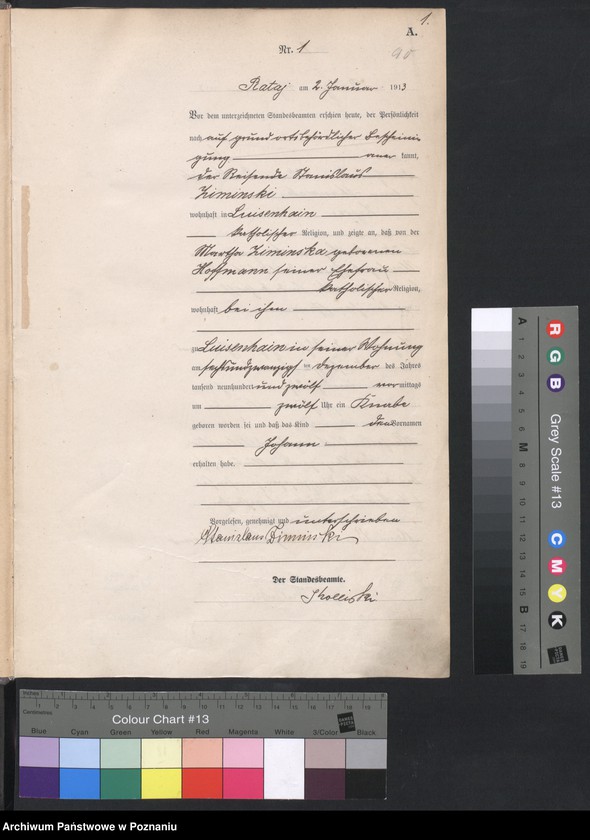 1.
A.
90
Nr. 1
Rataj am 2. Januar 1913
Vor dem unterzeichneten Standesbeamten erschien heute, der Persönlichkeit
nach auf grund ortsbehördlicher Bescheini
gung aner kannt,
der Reisende Stanislaus
Ziminski
wohnhaft in Luisenhain
katholischer Religion, und zeigte an, daß von der
Martha Ziminska geborenen
Hoffmann seiner Ehefrau
katholischer Religion,
wohnhaft bei ihm
zu Luisenhain in seiner Wohnung
am sechsundzwanzigsten Dezember des Jahres
tausend neunhundert und zwölf vor mittags
um zwölf Uhr ein Knabe
geboren worden sei und daß das Kind den Vornamen
Johann
erhalten habe.
Vorgelesen, genehmigt und unterschrieben
Stanislaus Ziminski
Der Standesbeamte.
Skolliski
Inches 1 2 3 4 5 6 7 8
Centimetres 1 2 3 4 5 6 7 8 9 10 11 12 13 14 15 16 17 18 19
Colour Chart #13
Blue Cyan Green Yellow Red Magenta White 3/Color Black
Grey Scale #13
R G B C M Y K
A 1 2 3 4 5 6 M 8 9 10 11 12 13 14 15 B 17 18 19
Archiwum Państwowe w Poznaniu